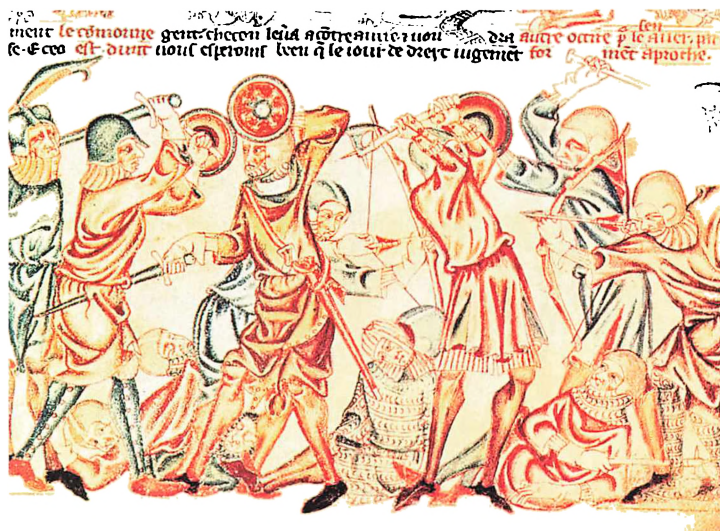 ment le cōmoune gent: checon leūa a cōtre autre ⁊ vou dra autre occire p̄ le auer.
se. E ceo est. dunt nous esperoms been q̄ le iour de dreyt iugemēt for ment aproche.